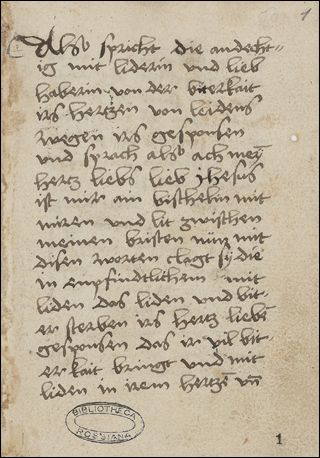 1
Also spricht die andecht=
ig mit liderin und lieb
haberin von der biterkait
irs hertzen von leidens
wegen irs gesponsen
und sprach also ach mey̅
hertz liebs lieb jhesus
ist mir am bisthelin mit
miren und lit zwisthen
meinen bristen nun mit
disen worten clagt sy die
in empfindtlichem mit
liden das liden und bit-
er sterben irs hertz liebst
gesponsen das ir vil bit-
er kait bringt und mit
liden in irem hertze̅ vn̅
BIBLIOTHECA
ROSSIANA
1